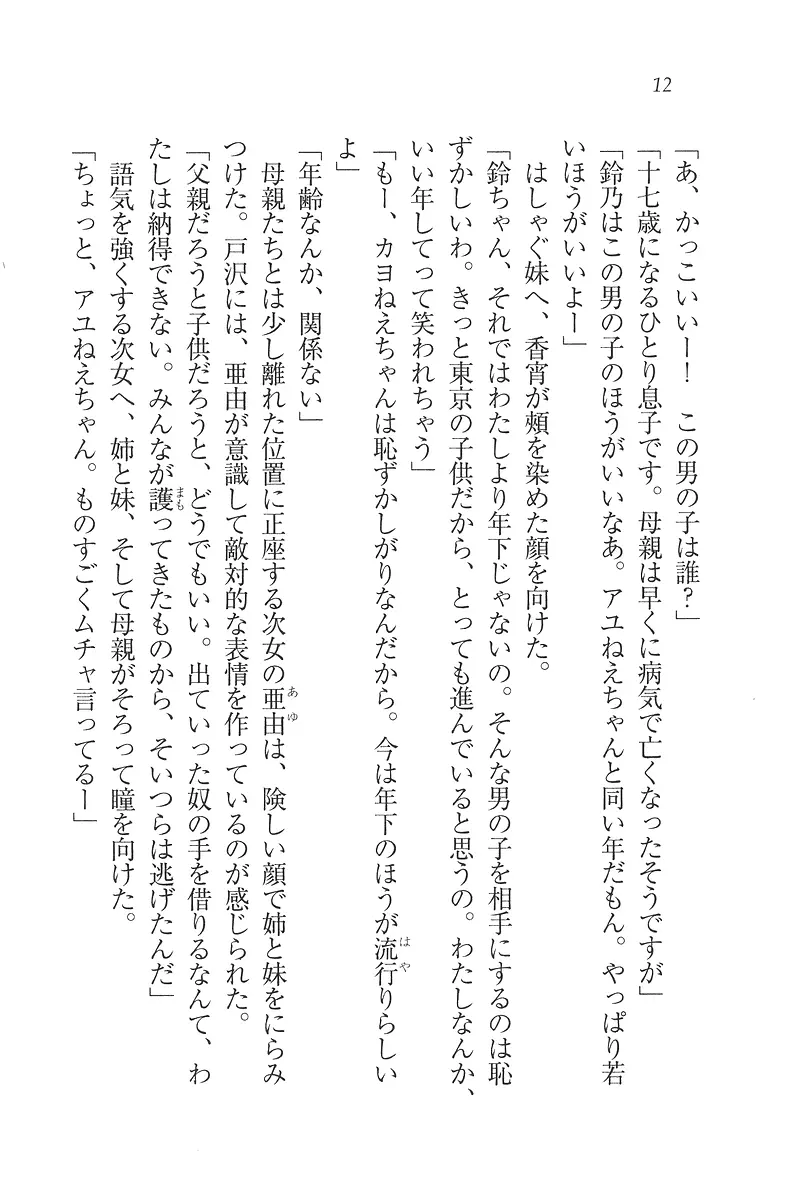 12
「あ、かっこいいー！　この男の子は誰？」
「十七歳になるひとり息子です。母親は早くに病気で亡くなったそうですが」
「鈴乃はこの男の子のほうがいいなあ。アユねえちゃんと同い年だもん。やっぱり若
いほうがいいよー」
　はしゃぐ妹へ、香宵が頰を染めた顔を向けた。
「鈴ちゃん、それではわたしより年下じゃないの。そんな男の子を相手にするのは恥
ずかしいわ。きっと東京の子供だから、とっても進んでいると思うの。わたしなんか、
いい年してって笑われちゃう」
「もー、カヨねえちゃんは恥ずかしがりなんだから。今は年下のほうが流行りらしい
よ」
「年齢なんか、関係ない」
　母親たちとは少し離れた位置に正座する次女の亜由は、険しい顔で姉と妹をにらみ
つけた。戸沢には、亜由が意識して敵対的な表情を作っているのが感じられた。
「父親だろうと子供だろうと、どうでもいい。出ていった奴の手を借りるなんて、わ
たしは納得できない。みんなが護ってきたものから、そいつらは逃げたんだ」
　語気を強くする次女へ、姉と妹、そして母親がそろって瞳を向けた。
「ちょっと、アユねえちゃん。ものすごくムチャ言ってるー」